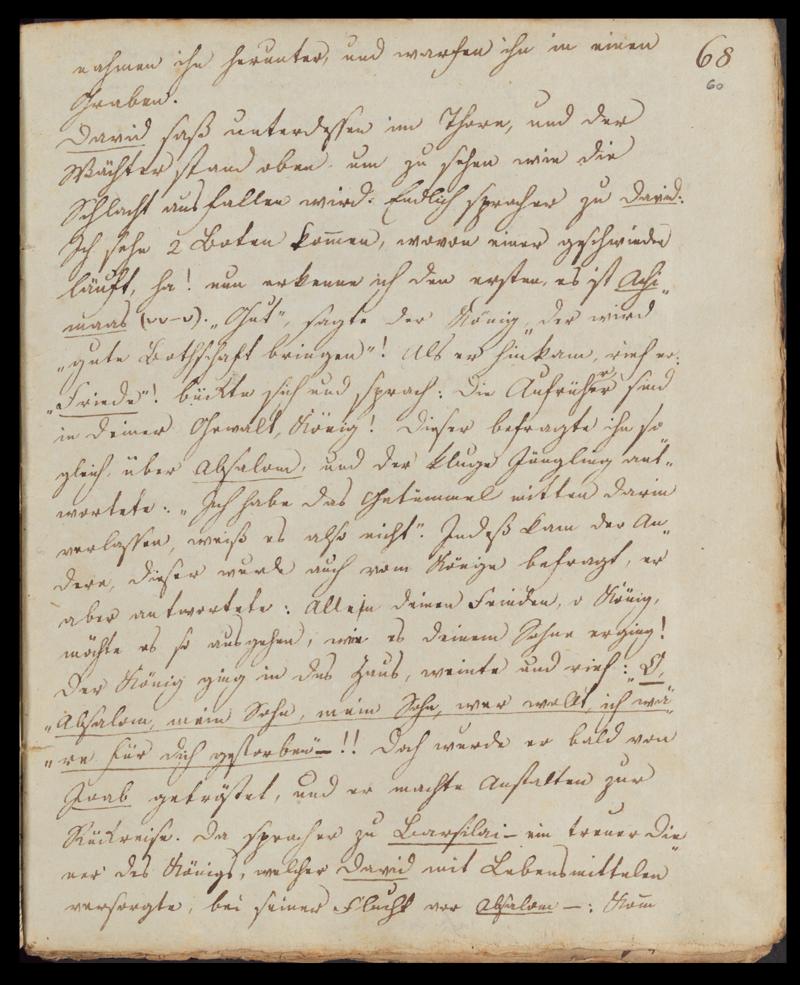 68
60
nahmen ihn herunter, und warfen ihn in einen
Graben.
David saß unterdessen im Thore, und der
Wächter stand oben um zu sehen wie die
Schlacht ausfallen wird. Endlich sprach er zu David:
Ich sehe 2 Boten kom̅en, wovon einer geschwinder
läuft, ha! nun erkenne ich den ersten, es ist Achi„
maas (vv–v). „Gut", sagte der König „der wird
„gute Bothschaft bringen"! Als er hinkam, rief er:
„Friede"! bückte sich und sprach: Die Aufrührer sind
in deiner Gewalt, König! Dieser befragte ihn so„
gleich über Absalom, und der kluge Jüngling ant„
wortete: „Ich habe das Getümmel mitten darin
verlassen, weiß es also nicht". Indeß kam der An„
dere, dieser wurde auch vom Könige befragt, er
aber antwortete: Allein deinen Feinden, o König,
möchte es so ausgehen, wie es deinem Sohne erging!
Der König ging in das Haus, weinte und rief: „O,
„Absalom, mein Sohn, mein Sohn, wer wollt, ich wä„
„re für dich gestorben"–!! Doch wurde er bald von
Joab getröstet, und er machte Anstalten zur
Rückreise. Da sprach er zu Barsilai – ein treuer Die„
ner des Königs, welcher David mit Lebensmittelen
versorgte, bei seiner Flucht vor Absalom –: Kom̅